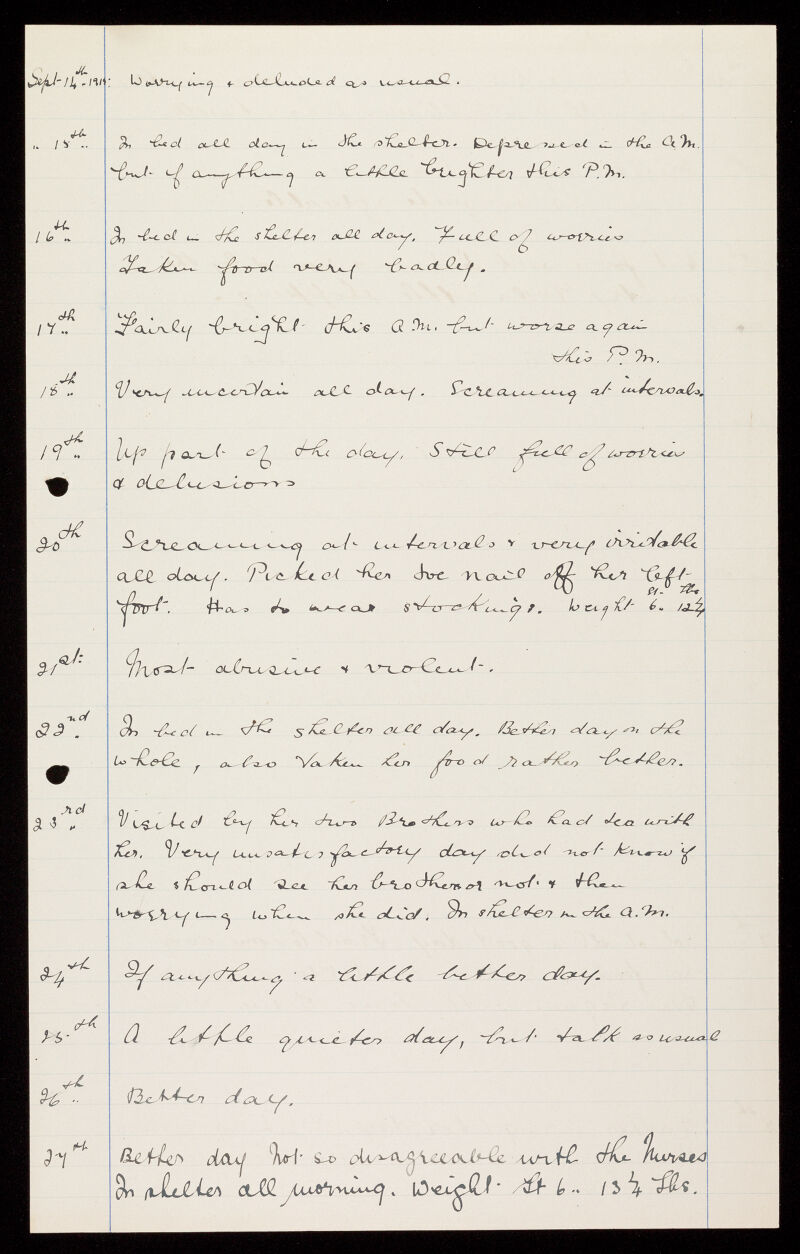 Sept 14th 1919: Worrying & deluded as usual.
" 15th " In bed all day in the shelter. Depressed in the A.M.
but if anything a little brighter this P.M.
16th " In bed in the shelter all day. Full of worries
Taken food very badly.
17th " Fairly bright this A.M. but worse again
this P.M.
18th " Very uncertain all day. Screaming at intervals.
19th " Up part of the day. Still full of worries
& delusions
20th Screaming at intervals & very irritable
all day. Picked her toe nail off her left
foot. Has to wear stockings. Weight St 6.. lbs 12¼
21st: Most abusive & violent.
22nd. In bed in the shelter all day. Better day on the
whole, also taken her food rather better.
23rd " Visited by her two Brothers who had tea with
her. Very unsatisfactory day did not know if
she should see her brothers or not & then
worrying when she did. In shelter in the a.m.
24th If anything a little better day.
25th A little quieter day, but talk as usual
26th " Better day.
27th Better day Not so disagreeable with the Nurses
In shelter all morning. Weight St 6.. 13¼ lbs.